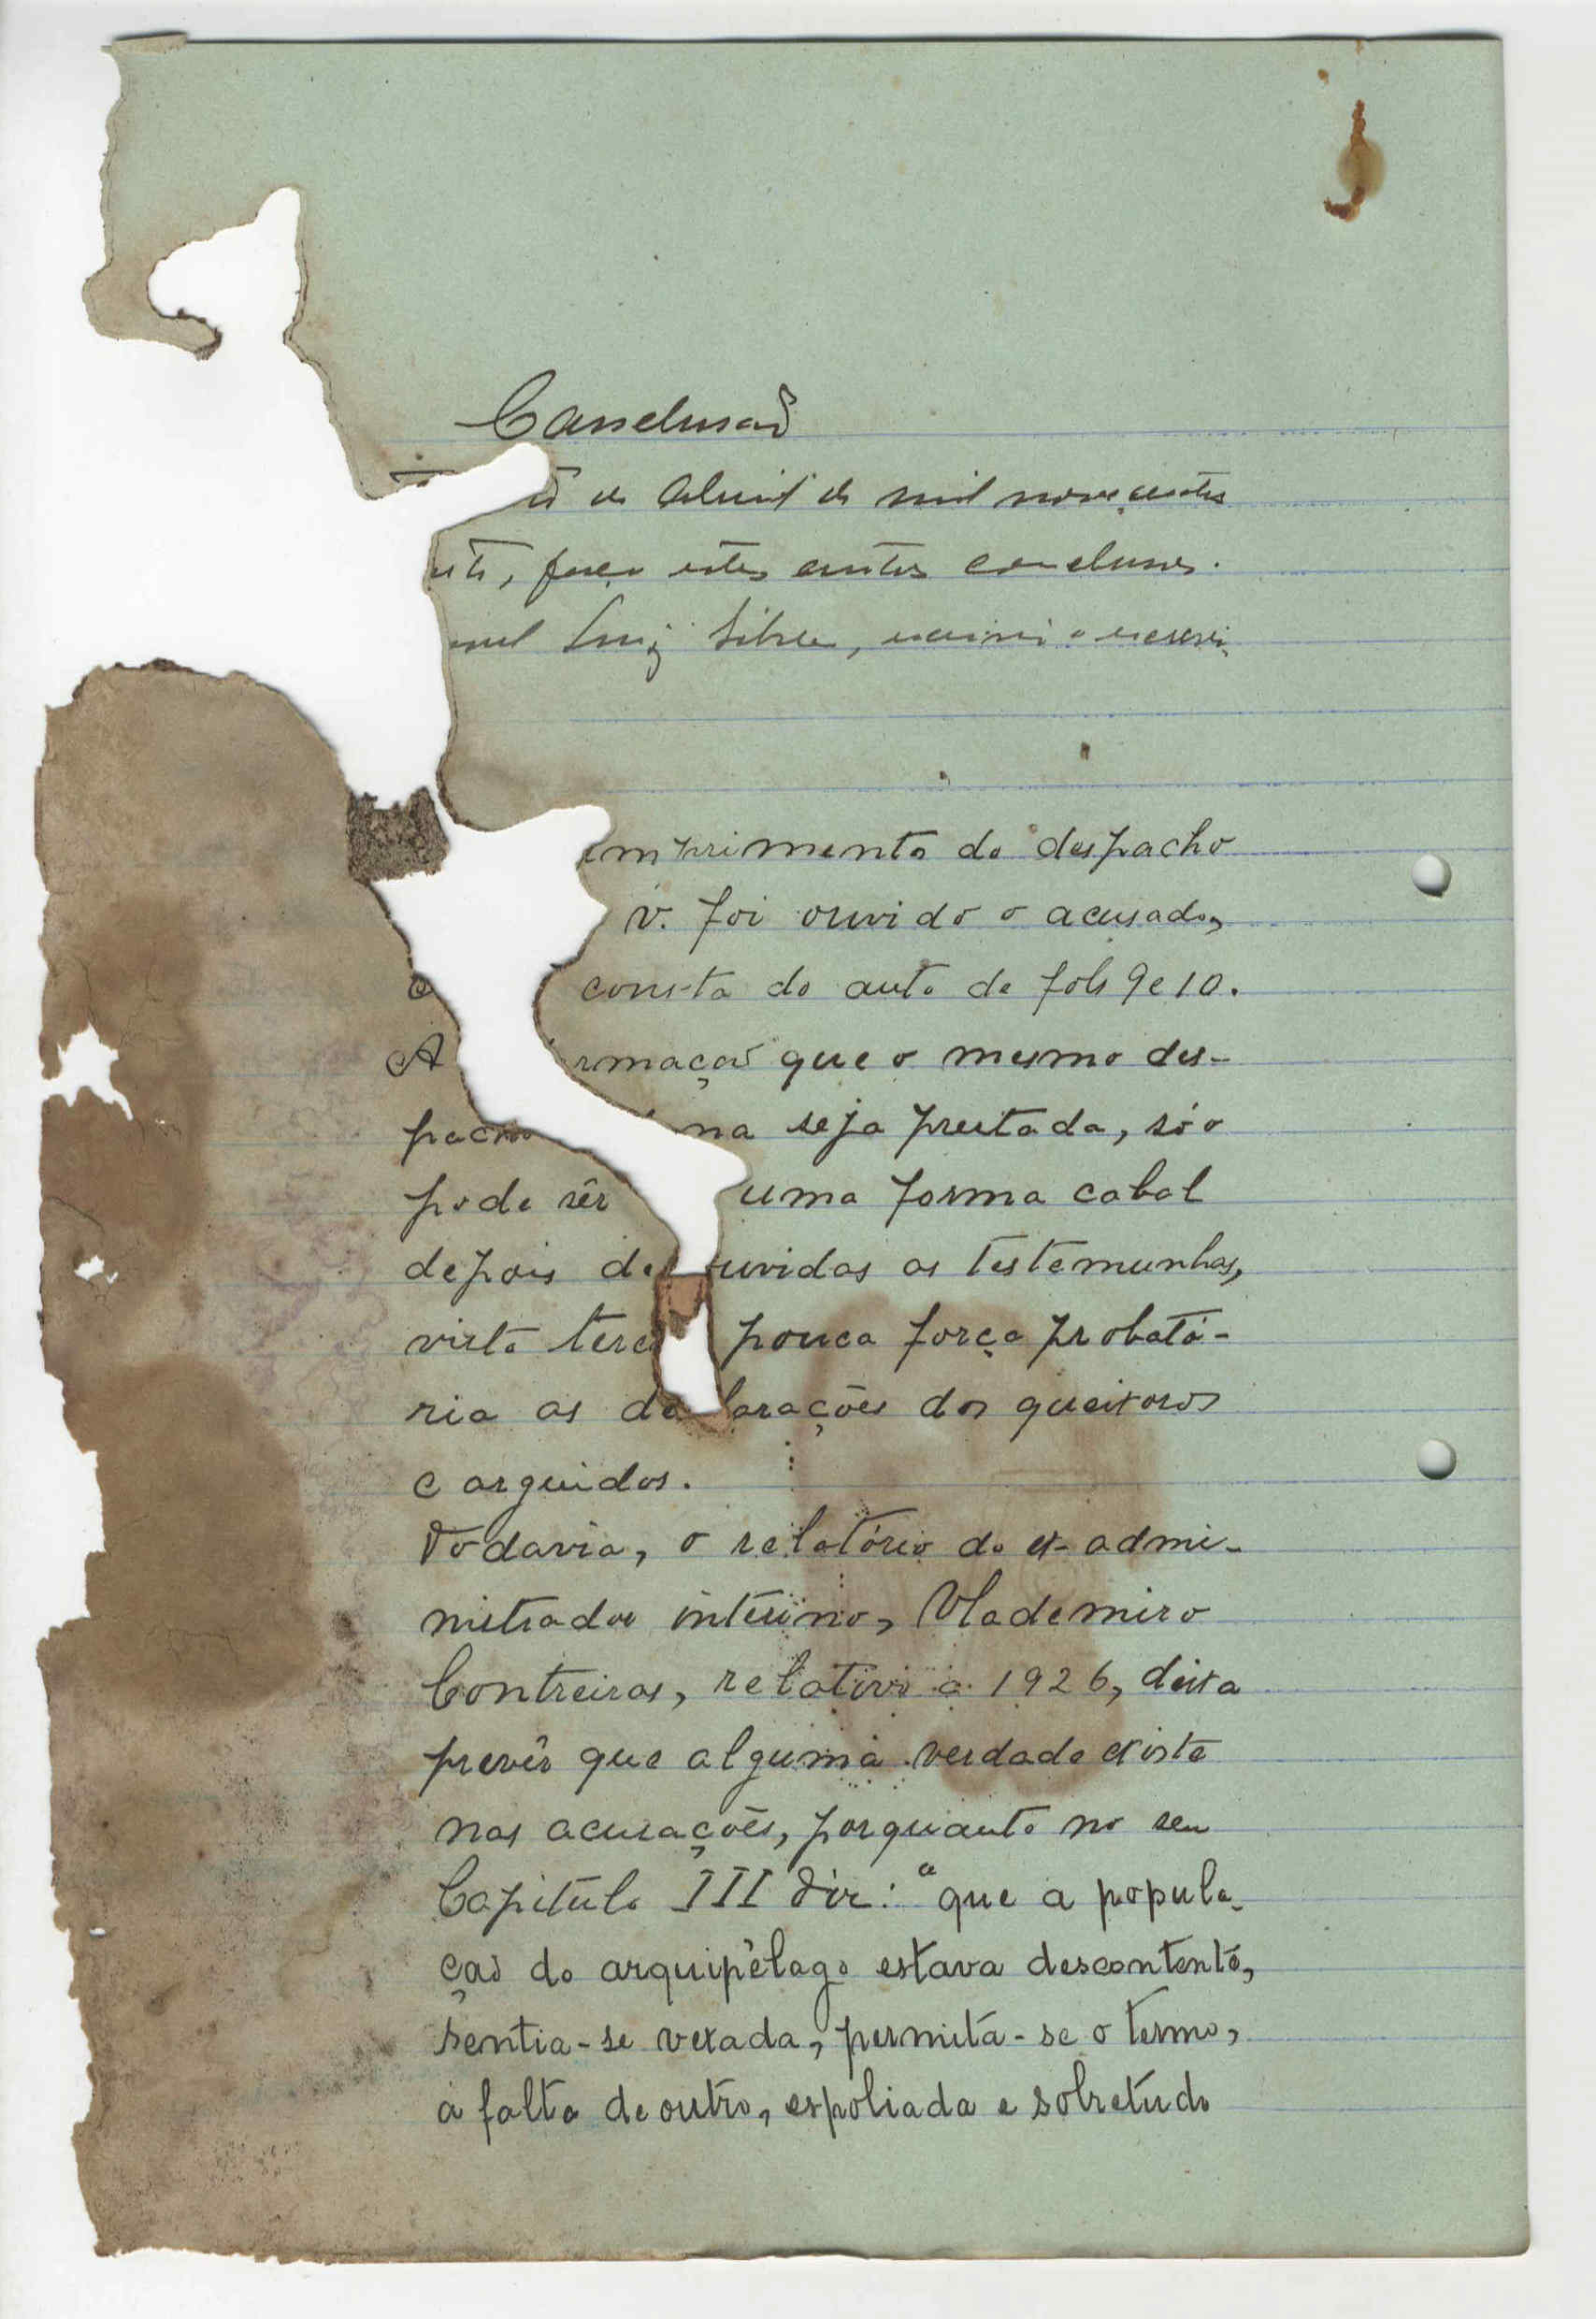 Conclusão
de Abril de mil novecentos
faço estes autos conclusos.
Luiz Silva, escrivão o escrevi.
mprimento do despacho
v. foi ouvido o acusado,
consta do auto de fols 9 e 10.
A rmação que o mesmo des-
na seja prestada, só o
pode sêr uma forma cabal
depois de uvidas as testemunhas,
visto pouca força probató-
ria as de larações dos queixosos
e arguidos.
Todavia, o relatório do ex-admi-
nistrador intérino, Vlademiro
Contreiras, relativo a 1926, deixa
prevêr que alguma verdade existe
nas acusações, porquanto no seu
Capitulo III diz: "que a popula-
ção do arquipélago estava descontente,
sentia-se vexada, permita-se o termo,
à falta de outro, espoliada e sobretudo